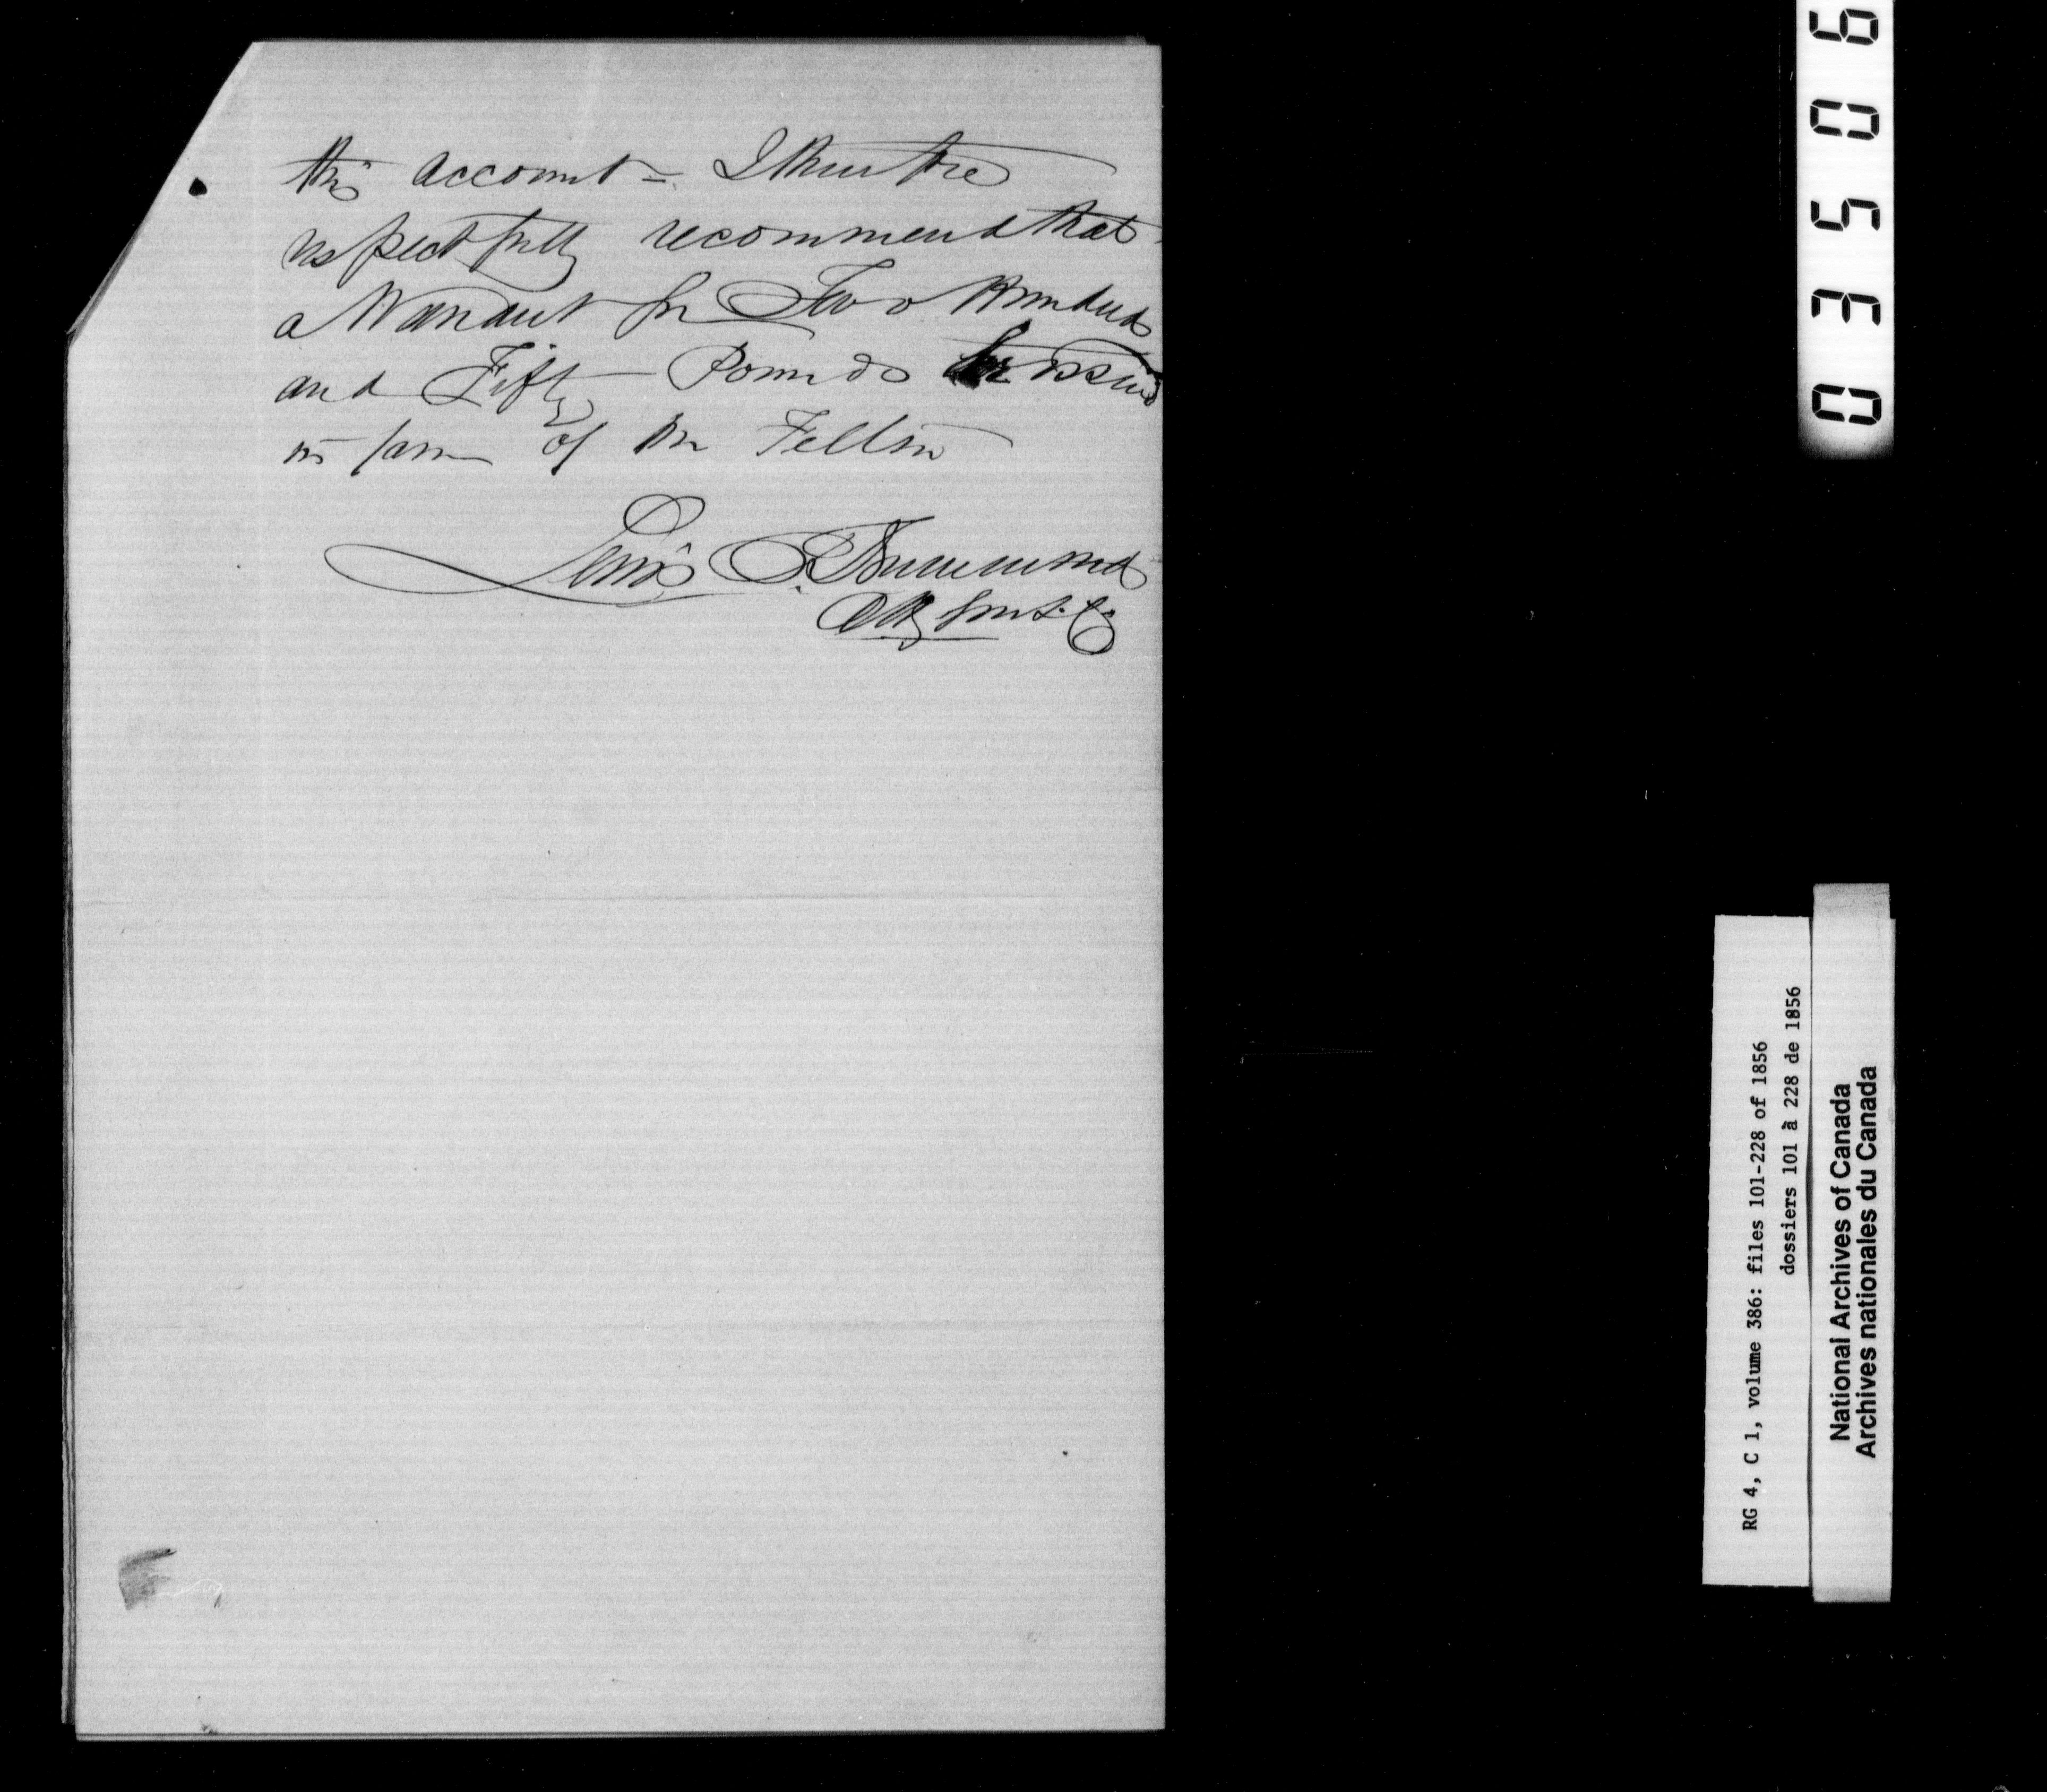 this account – I therefore
respectfully recommend that
a Warrant for Two Hundred
and Fifty Pounds be issued
in favor of Mr Felton
Lewis T. Drummond
Atty Genl. L. C.
03506
RG 4, C 1, volume 386: files 101-228 of 1856
dossiers 101 à 228 de 1856
National Archives of Canada
Archives nationales du Canada